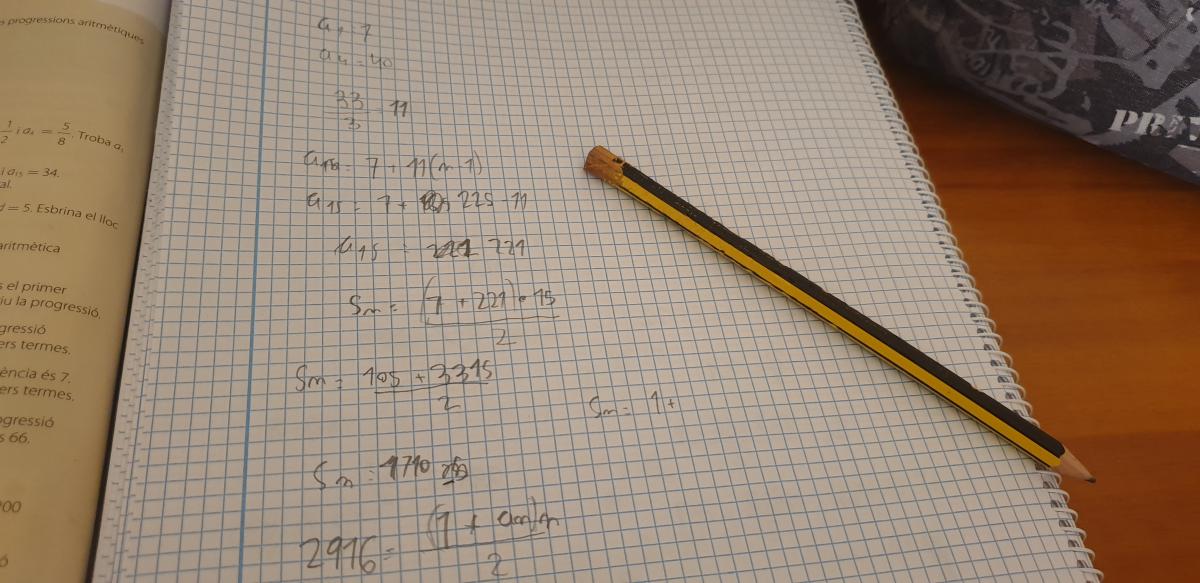 s progressions aritmètiques
1/2 i a₄ = 5/8. Troba a₁
i a₁₅ = 34.
al.
d = 5. Esbrina el lloc
aritmètica
s el primer
iu la progressió.
gressió
ers termes.
ència és 7.
ers termes.
ogressió
s 66.
00
ó
a₁ = 7
a₄ = 40
33/3 = 11
7 + 11(n-1)
a₁₅ = 7 + 225 - 11
a₁₅ = 221
Sm = (7 + 221) · 15 / 2
Sm = 105 + 3315 / 2
Sm = 1+
Sm = 1710
2916 = (1 + am)n / 2